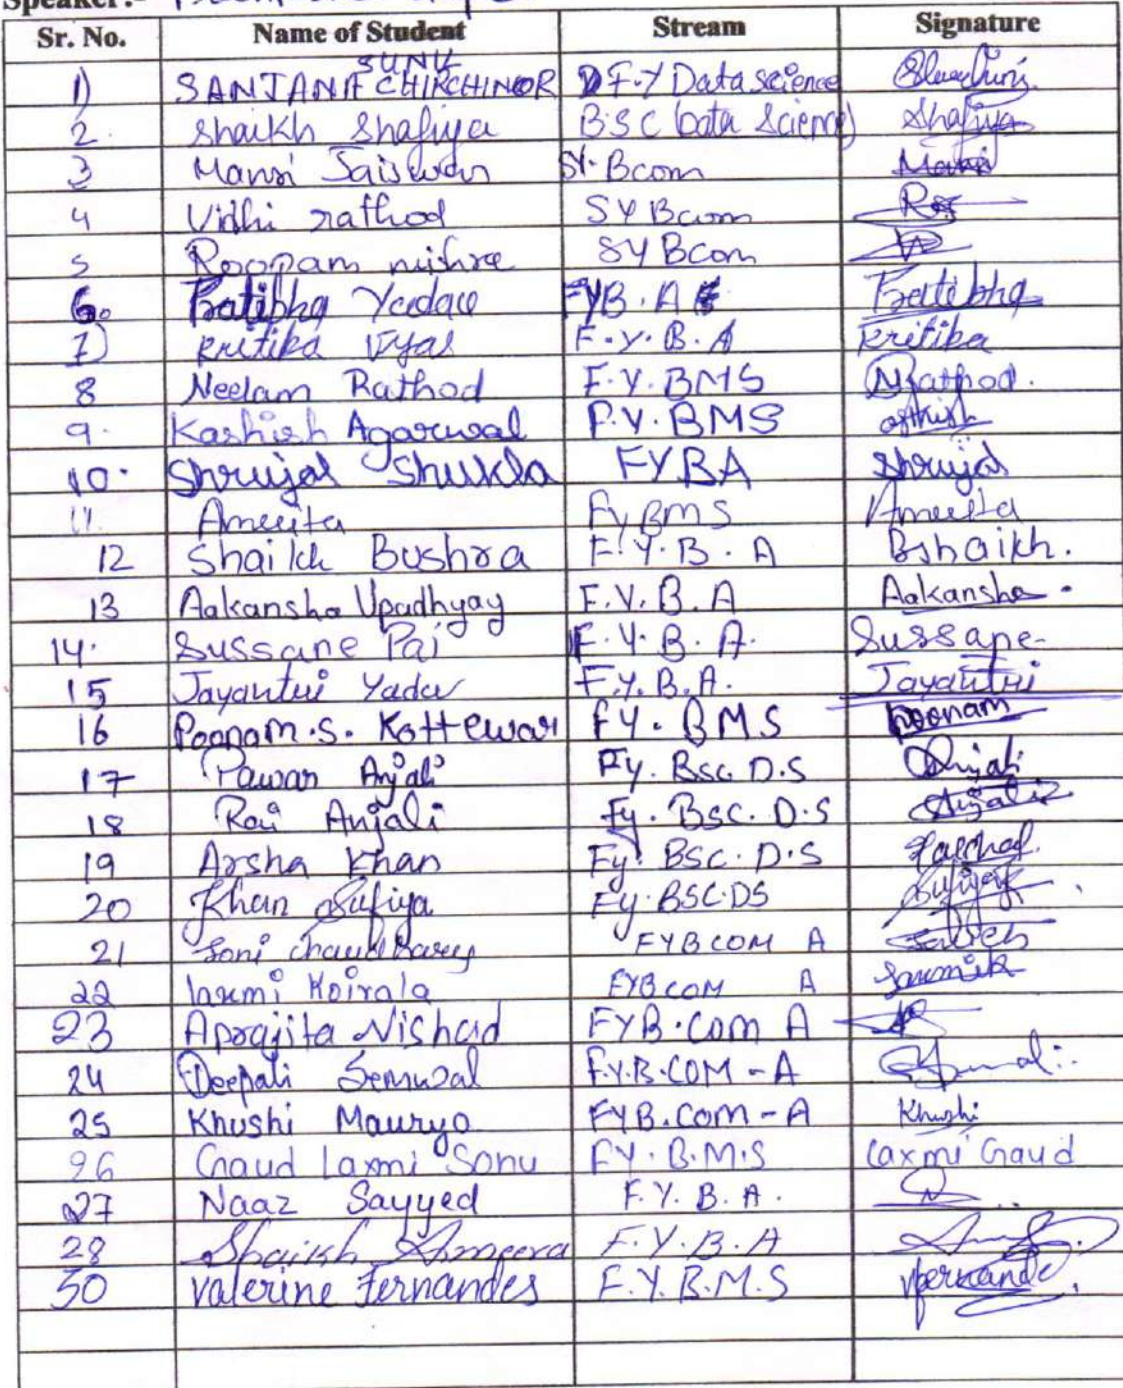 Speaker:-
Sr. No. Name of Student Stream Signature
1) SANJANA SUNIL CHIRCHINOR F.Y Data science
2. Shaikh Shafiya B.S.C (Data Science) Shafiya
3 Mansi Jaiswar SY. Bcom Mansi
4 Vidhi rathod SY Bcom
5 Roopam mishra SY Bcom
6. Pratibha Yadav FYB.A Pratibha
7) Kritika Vyas F.Y.B.A Kritika
8 Neelam Rathod F.Y.BMS NRathod.
9. Kashish Agarwal F.Y.BMS
10. Shrujal Shukla FYBA Shrujal
11. Amrita FyBMS Amrita
12 Shaikh Bushra F.Y.B.A Bshaikh.
13 Aakansha Upadhyay F.Y.B.A Aakansha.
14. Sussane Pai F.Y.B.A. Sussane
15 Jayantui Yadav F.Y.B.A. Jayantui
16 Poonam.S. Kottewar FY.BMS Poonam
17 Pawar Anjali Fy. Bsc. D.S Anjali
18 Rai Anjali Fy. Bsc. D.S Anjali
19 Arsha Khan Fy. BSC. D.S
20 Khan Sufiya Fy. BSC.DS Sufiya
21 Soni Chaudharey FYBCOM A
22 laxmi Koirala FYBCOM A
23 Aprajita Nishad FYB.COM A
24 Deepali Semwal F.Y.B.COM - A
25 Khushi Maurya FYB.COM - A Khushi
26 Gaud Laxmi Sonu FY.B.M.S Laxmi Gaud
27 Naaz Sayyed F.Y.B.A.
28 Shaikh Ameera F.Y.B.A
50 Valerine Fernandes F.Y.B.M.S Vfernande